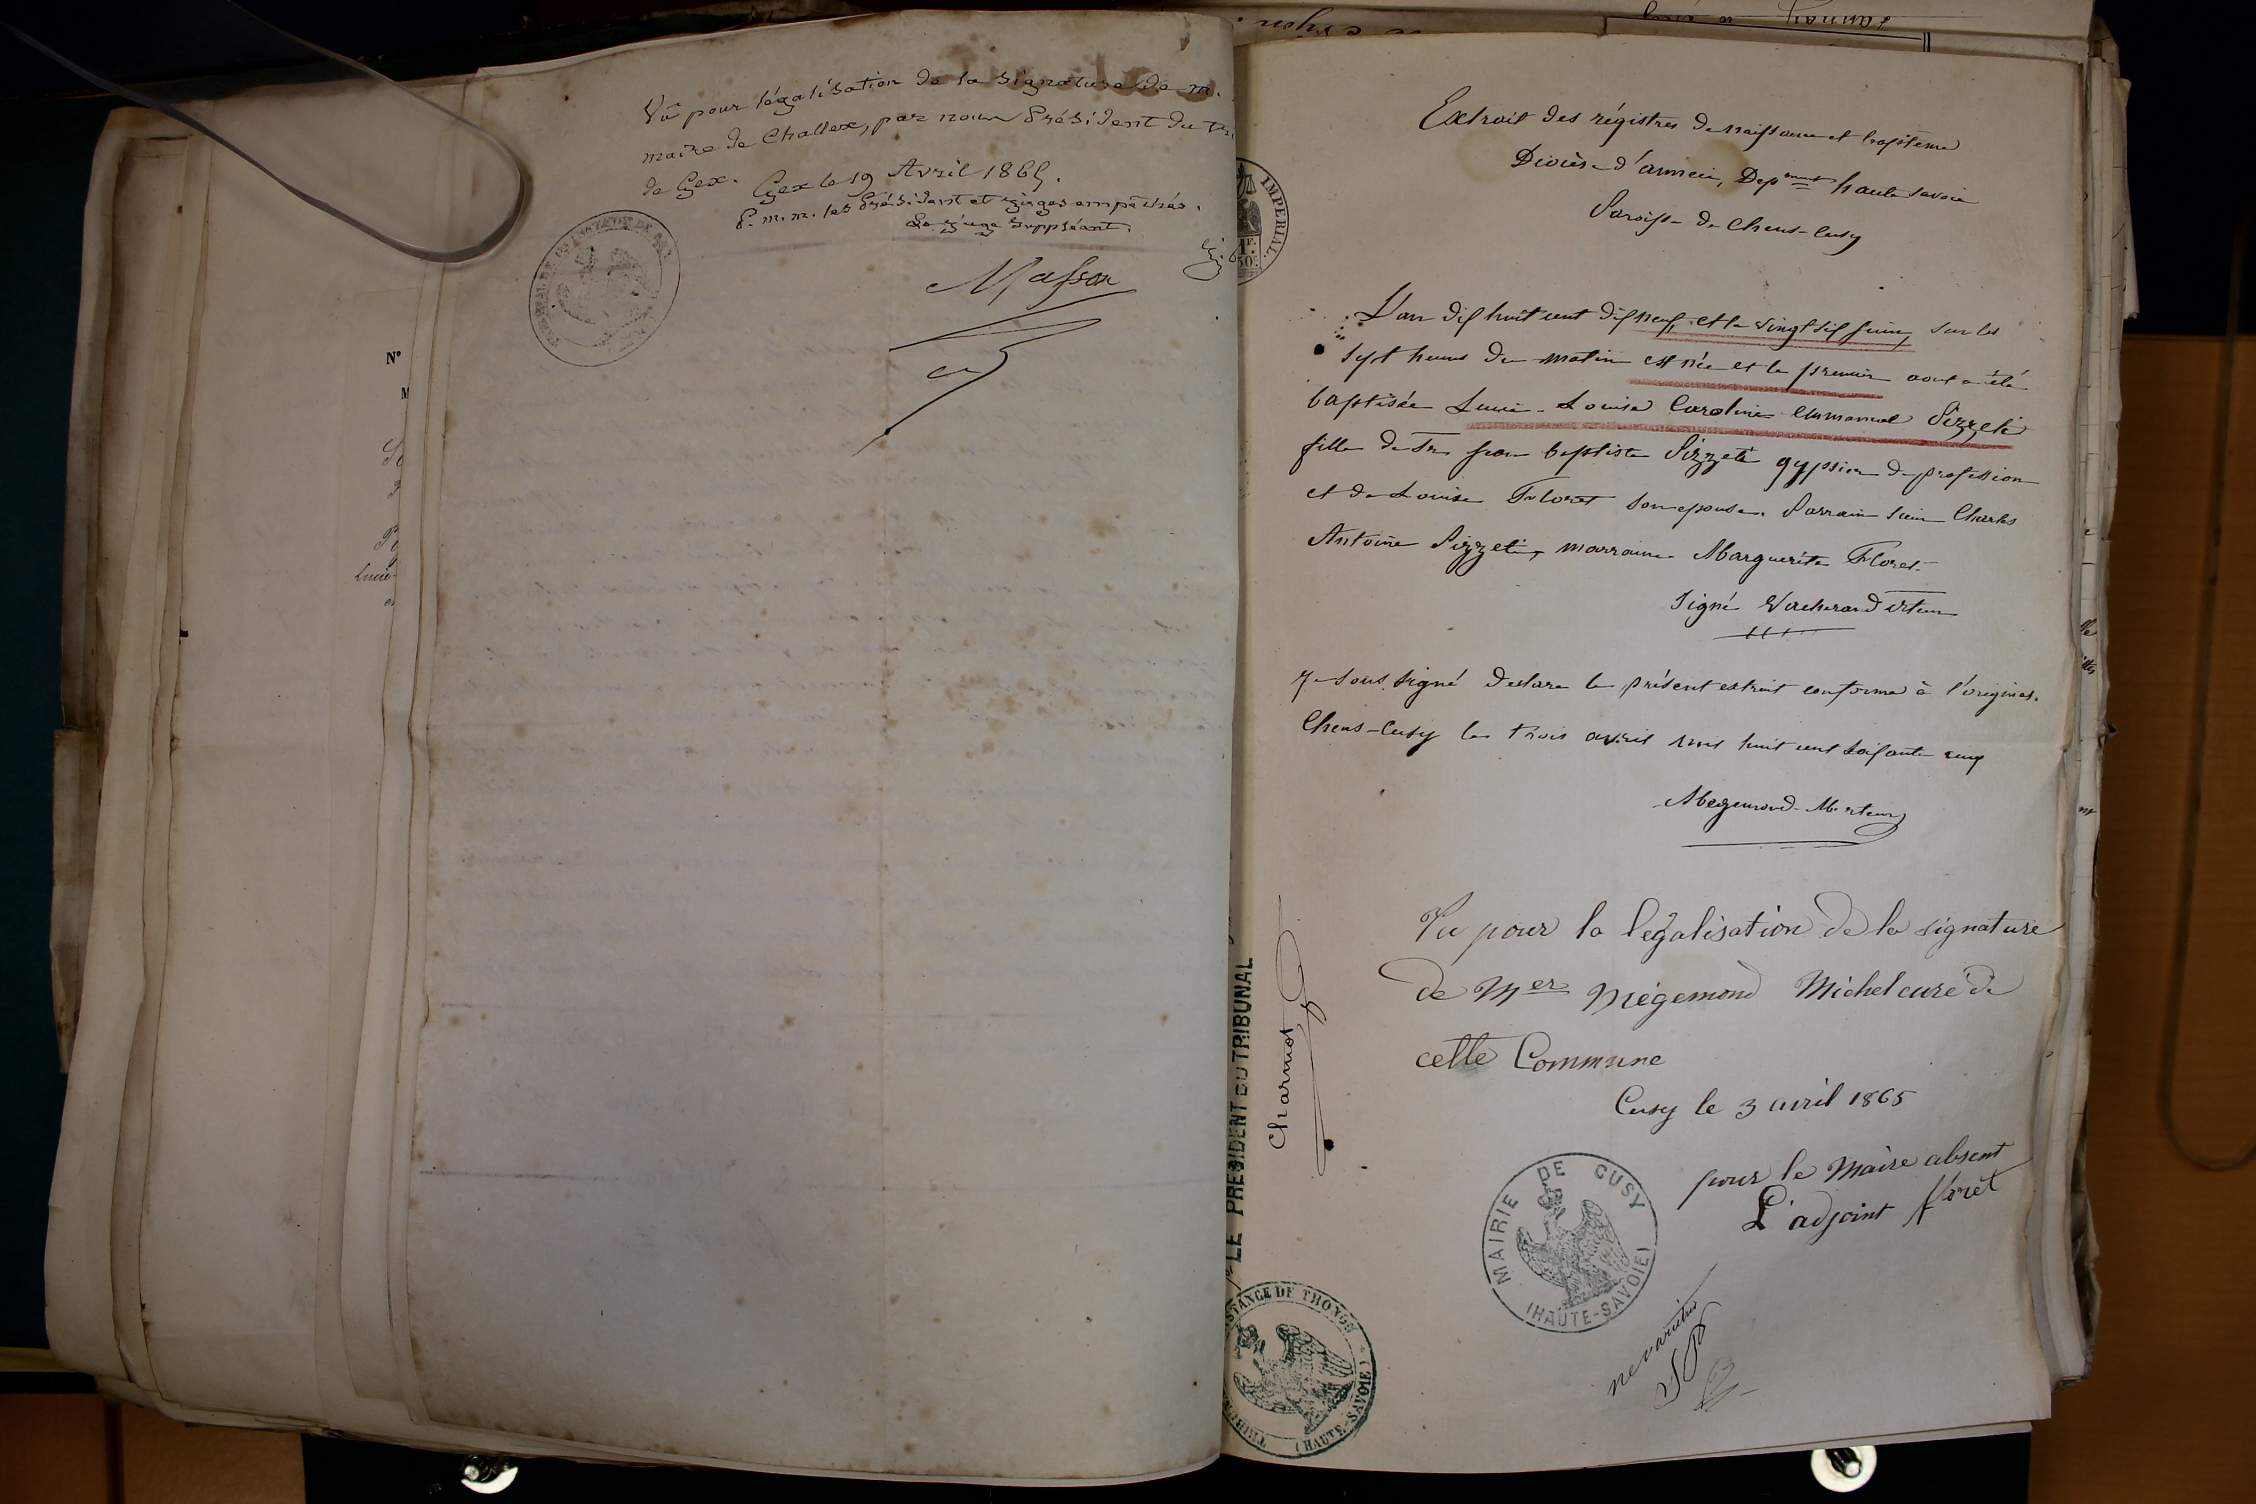 Vû pour légalisation de la signature de m.
maire de Challex, par nous Président du tri
de Gex. Gex le 19 Avril 1865.
P. m. m. les Président et Juges empêchés.
Le Juge Suppléant.
Masson
N°
M
Lucie
IMPERIAL
1F.
50c.
Extrait des régistres de naissance et baptême
Diocèse d'annecy, Depment haute savoie
Paroisse de Chens-Cusy
L'an dix huit cent dix neuf, et le vingt six juin, sur les
sept heures du matin est née et le premier aout a été
baptisée Lucie-Louise Caroline emmanuel Pizzeti
fille de Sr jean baptiste Pizzeti gypsier de profession
et de Louise Floret son epouse. Parrain Charles
Antoine Pizzeti, marraine Marguerite Floret.
Signé Vacherand
Je sous signé declare le présent extrait conforme à l'original.
Chens-Cusy le trois avril mil huit cent soixante cinq
Megemond
Vu pour la légalisation de la signature
de Mer Mégemond Michel curé de
cette Commune
Cusy le 3 avril 1865
pour le Maire absent
L'adjoint floret
MAIRIE DE CUSY
(HAUTE-SAVOIE)
ne varietur
Charmot
LE PRÉSIDENT DU TRIBUNAL
STANCE DE THONON
(HAUTE-SAVOIE)